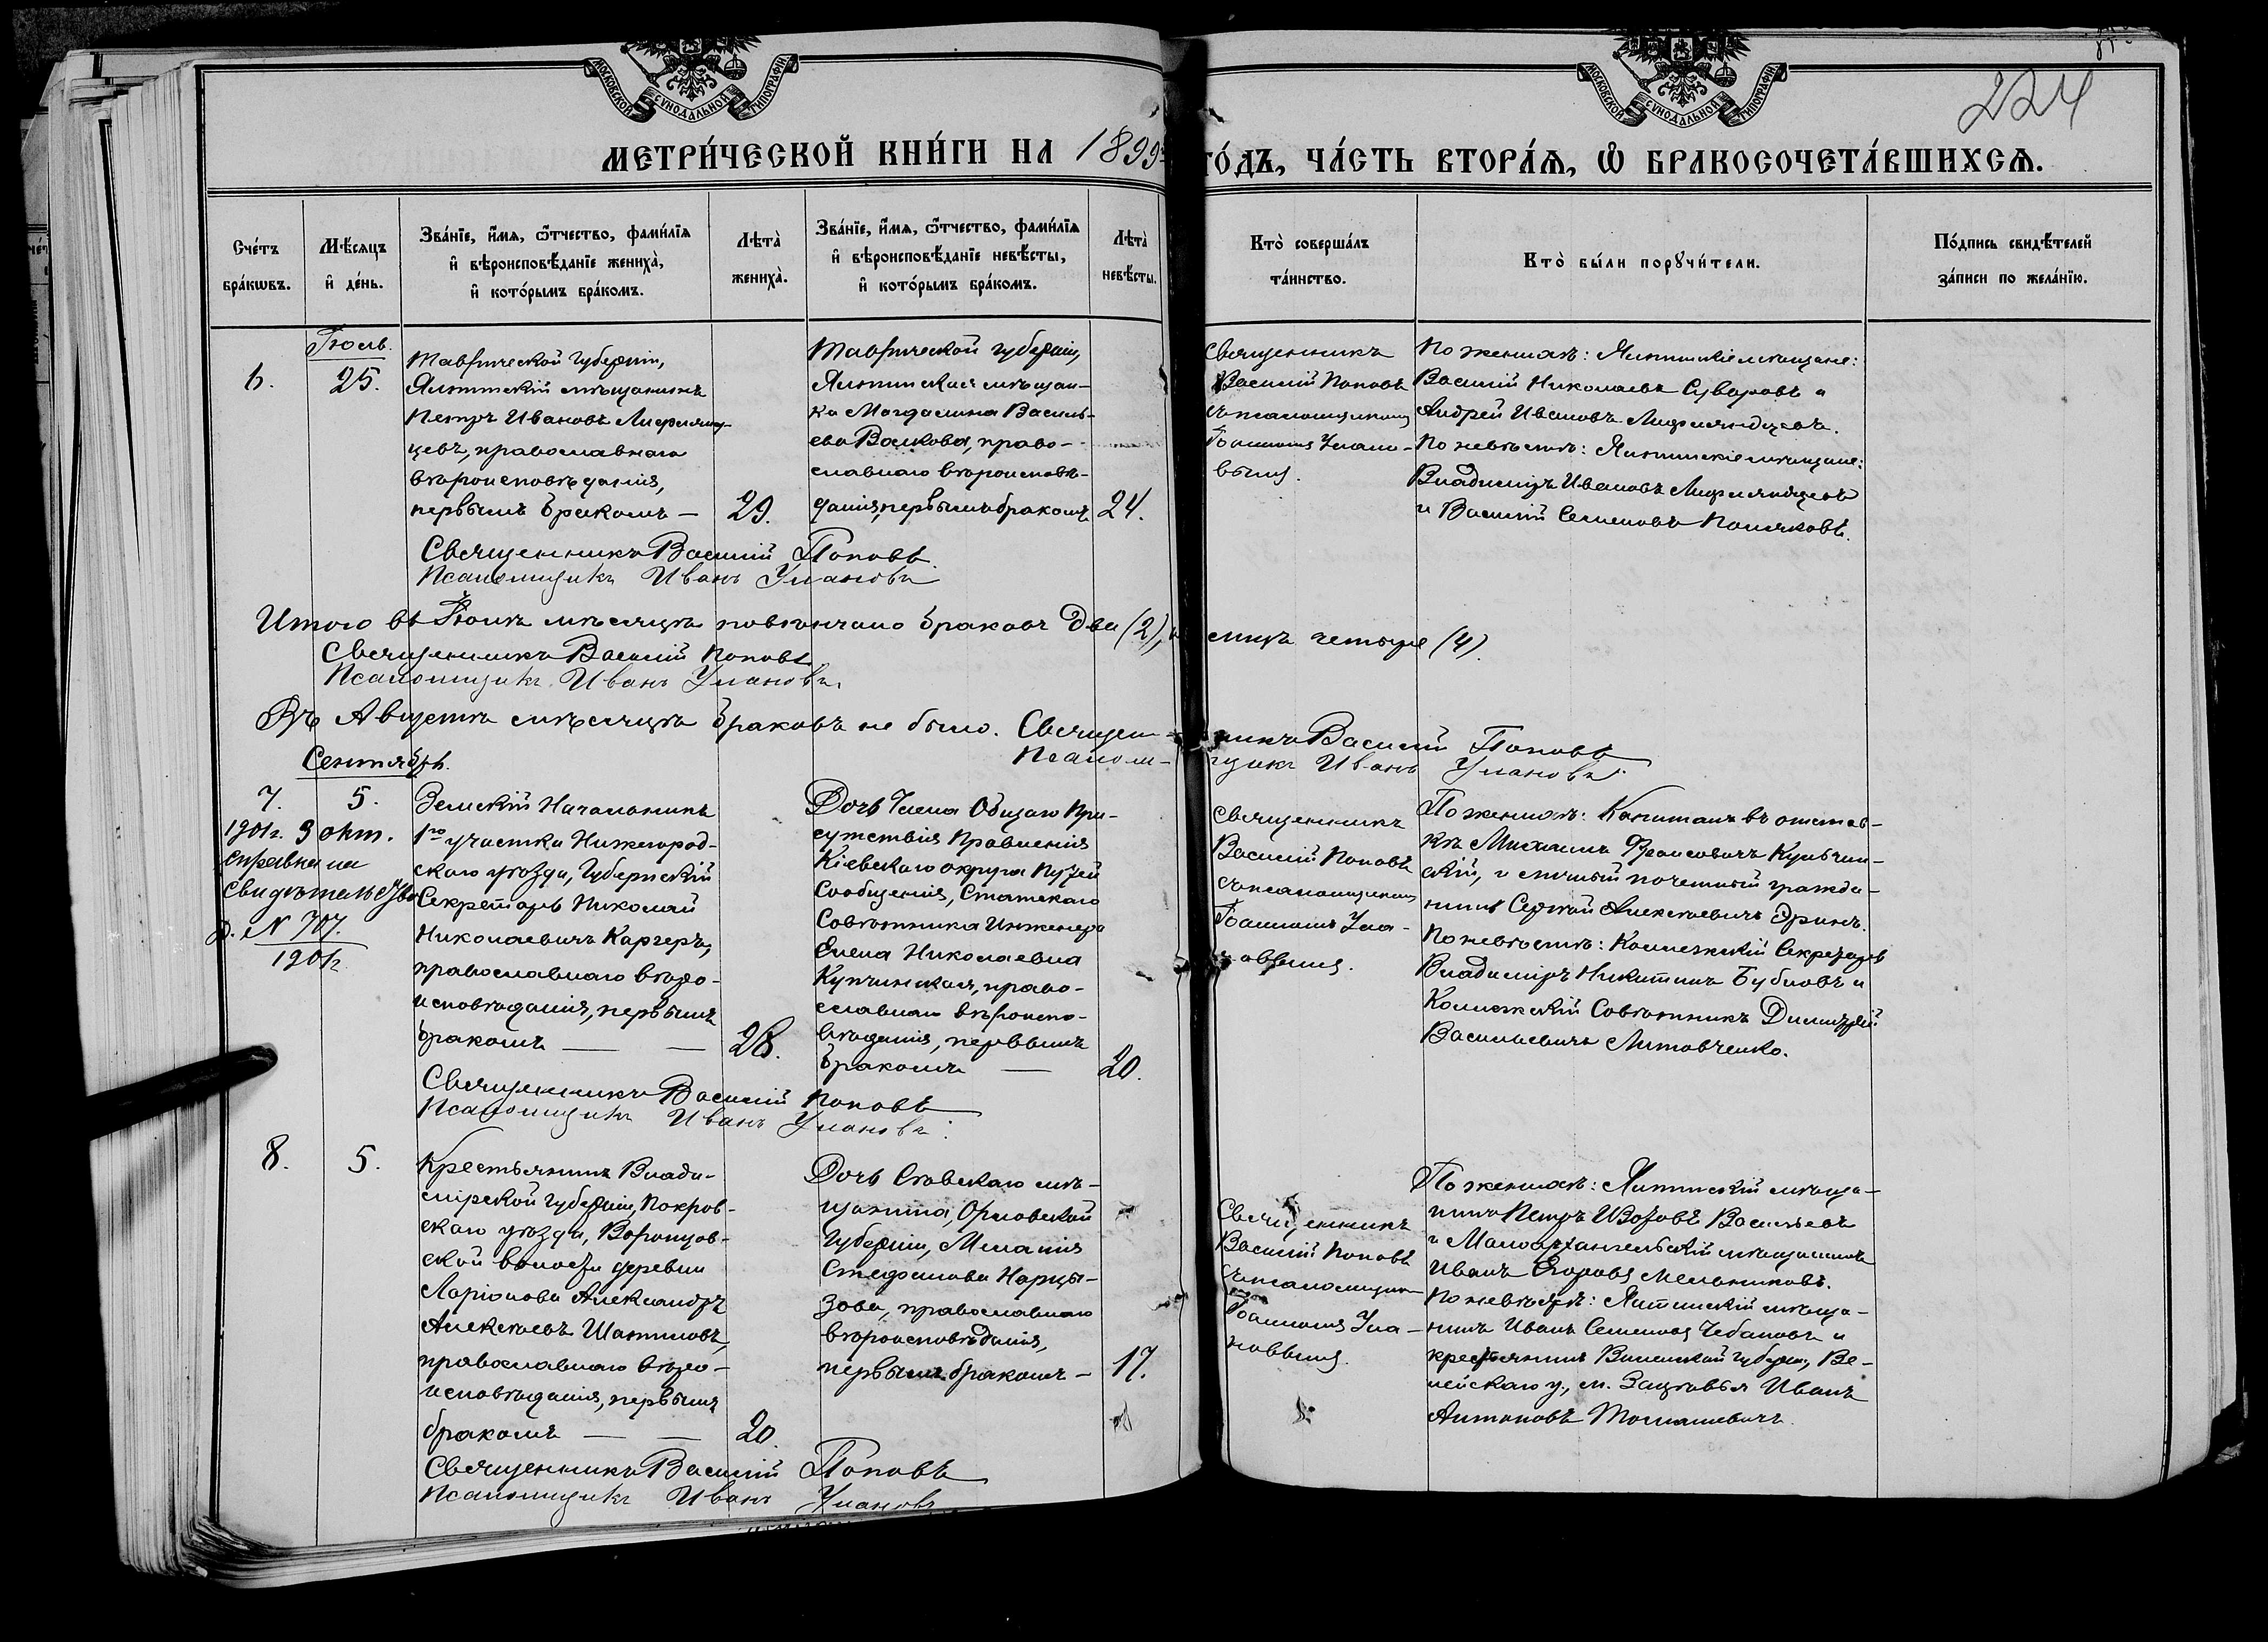 МОСКОВСКОЙ СѴНОДАЛЬНОЙ ТИПОГРАФІИ
МОСКОВСКОЙ СѴНОДАЛЬНОЙ ТИПОГРАФІИ
224
МЕТРИ́ЧЕСКОЙ КНИ́ГИ НА 1899 ГО́ДЪ, ЧА́СТЬ ВТОРА́Ѧ, Ѽ БРАКОСОЧЕТА́ВШИХСѦ.
Сче́тъ
бра́кѡвъ.
Мѣ́сѧцъ
и҆ де́нь.
Зва́нїе, и҆́мѧ, ѻ҆́тчество, фами́лїѧ
и҆ вѣроисповѣ́данїе жениха̀,
и҆ кото́рымъ бра́комъ.
Лѣта̀
жениха̀.
Зва́нїе, и҆́мѧ, ѻ҆́тчество, фами́лїѧ
и҆ вѣроисповѣ́данїе невѣ́сты,
и҆ кото́рымъ бра́комъ.
Лѣта̀
невѣ́сты.
Кто̀ соверша́лъ
та́инство.
Кто̀ бы́ли порꙋчи́тели.
По́дпись свидѣ́телей
за́писи по жела́нїю.
Іюль.
6.
25.
Таврической губерніи,
Ялтинскій мѣщанинъ
Петръ Ивановъ Лифлянд-
цевъ, православнаго
вѣроисповѣданія,
первымъ бракомъ —
29.
Таврической губерніи,
Ялтинская мѣщан-
ка Магдалина Василь-
ева Волкова, право-
славнаго вѣроисповѣ-
данія, первымъ бракомъ
24.
Священникъ
Василій Поповъ
съ псаломщикомъ
Іоанномъ Улано-
вымъ.
По женихѣ: Ялтинскіе мѣщане:
Василій Николаевъ Суворовъ и
Андрей Ивановъ Лифляндцевъ.
По невѣстѣ: Ялтинскіе мѣщане:
Владиміръ Ивановъ Лифляндцевъ
и Василій Семеновъ Поляковъ.
Священникъ Василій Поповъ.
Псаломщикъ Иванъ Улановъ
Итого въ Іюлѣ мѣсяцѣ повѣнчано браковъ два (2), лицъ четыре (4).
Священникъ Василій Поповъ
Псаломщикъ Иванъ Улановъ.
Въ Августѣ мѣсяцѣ браковъ не было. Священникъ Василій Поповъ
Псаломщикъ Иванъ Улановъ.
Сентябрь.
7.
5.
1901г. 9 окт.
справка на
свидѣтельство
д. N 707.
1901г.
Земскій Начальникъ
1го участка Нижегород-
скаго уѣзда, Губернскій
Секретарь Николай
Николаевичъ Каргеръ,
православнаго вѣро-
исповѣданія, первымъ
бракомъ — —
28.
Дочь Члена Общаго При-
сутствія Правленія
Кіевскаго округа Путей
Сообщенія, Статскаго
Совѣтника Инженера
Елена Николаевна
Купчинская, право-
славнаго вѣроиспо-
вѣданія, первымъ
бракомъ —
20.
Священникъ
Василій Поповъ
съ псаломщикомъ
Іоанномъ Ула-
новымъ.
По женихѣ: Капитанъ въ отстав-
кѣ Михаилъ Францовичъ Кульчин-
скій, и личный почетный гражда-
нинъ Сергѣй Алексѣевичъ Эринъ.
По невѣстѣ: Коллежскій Секретарь
Владиміръ Никитичъ Бубновъ и
Коллежскій Совѣтникъ Димитрій
Васильевичъ Литовченко.
Священникъ Василій Поповъ
Псаломщикъ Иванъ Улановъ.
8.
5.
Крестьянинъ Влади-
мірской губерніи, Покров-
скаго уѣзда, Воронцов-
ской волости деревни
Ларіонова Александръ
Алексѣевъ Шатиловъ,
православнаго вѣро-
исповѣданія, первымъ
бракомъ — —
20.
Дочь Сѣвскаго мѣ-
щанина, Орловской
губерніи, Меланія
Стефанова Нарцы-
зова, православнаго
вѣроисповѣданія,
первымъ бракомъ —
17.
Священникъ
Василій Поповъ
съ псаломщикомъ
Іоанномъ Ула-
новымъ.
По женихѣ: Ялтинскій мѣща-
нинъ Петръ Васильевъ
и Малоархангельскій мѣщанинъ
Иванъ Егоровъ Мельниковъ.
По невѣстѣ: Ялтинскій мѣща-
нинъ Иванъ Семеновъ Чебановъ и
крестьянинъ Виленской губерніи, Ве-
лейскаго у., м. Иванъ
Антоновъ Томашевичъ.
Священникъ Василій Поповъ
Псаломщикъ Иванъ Улановъ